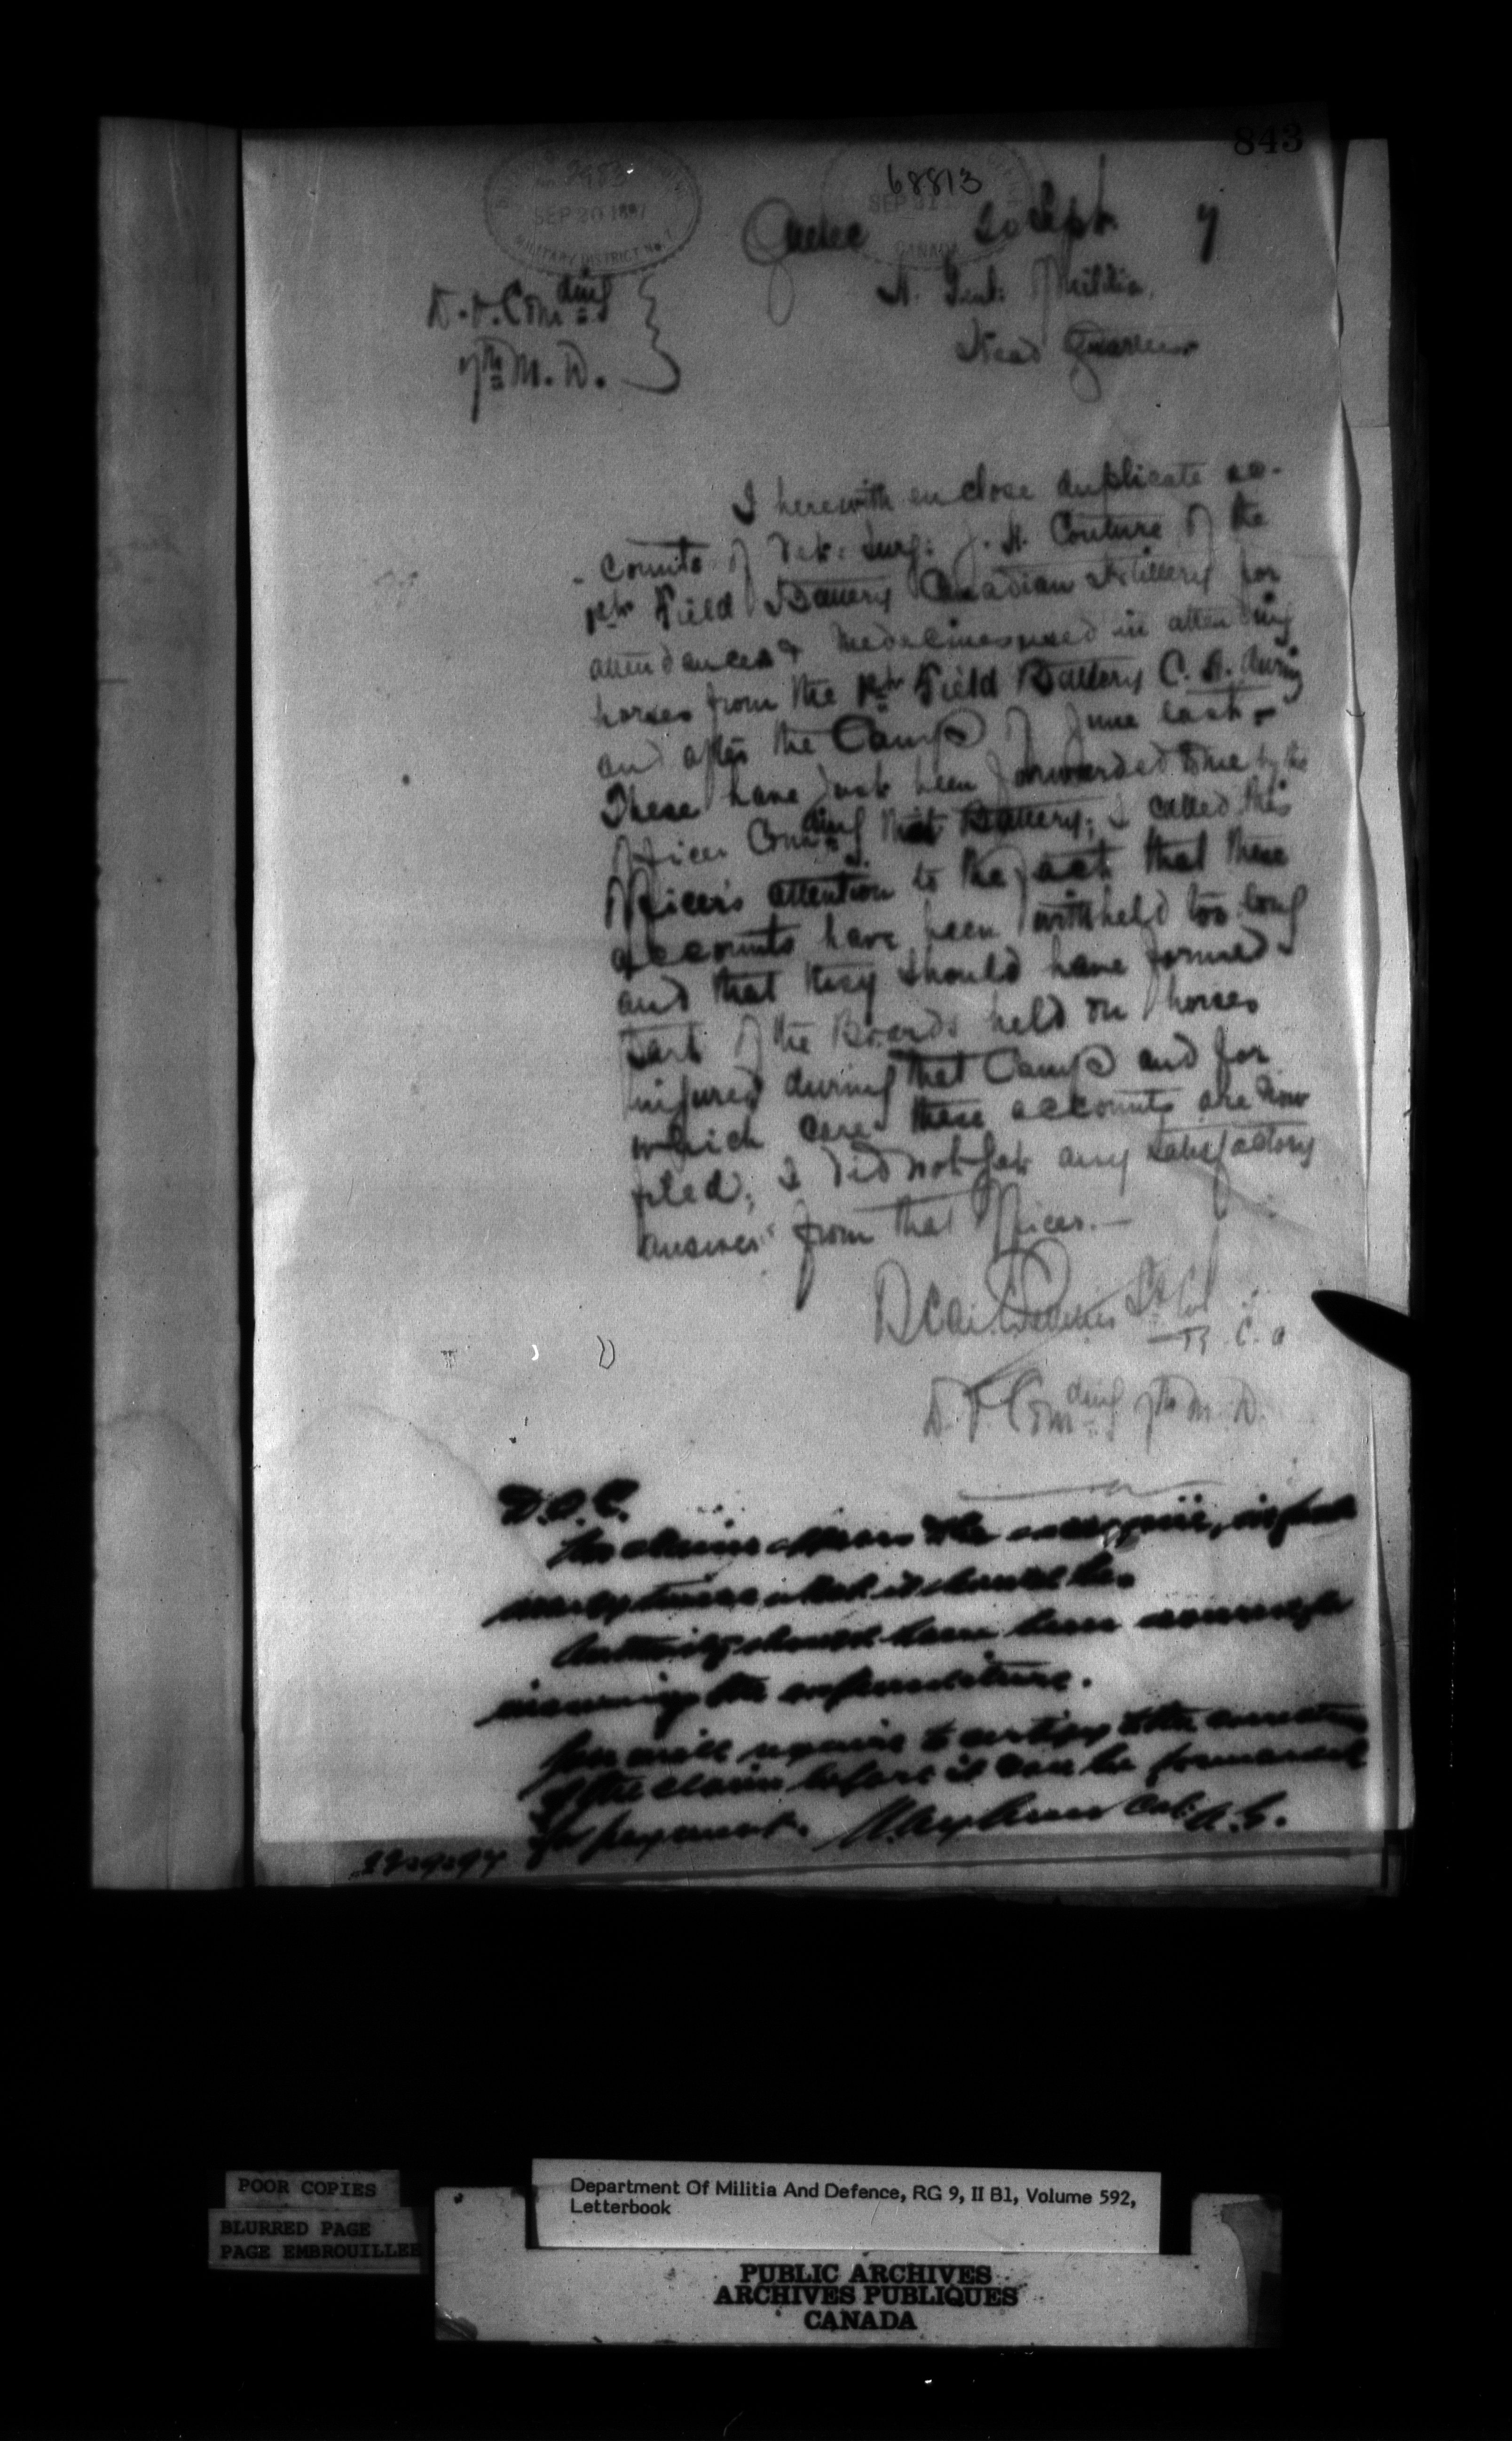 843
68813
SEP 20 1897
MILITARY DISTRICT No. 7
SEP 21
CANADA
Quebec 20 Sept. 7
D.O.Comding
7th M.D.
A. Genl. of Militia,
Head Quarters
I herewith enclose duplicate ac-
-counts of Vet: Surg: J. A. Couture of the
Field Battery Canadian Artillery for
attendances & Medecines used in attending
horses from the Field Battery C. A. during
and after the Camp of June last.-
These have just been forwarded to me by the
Officer Comding that Battery; I called this
Officer's attention to the fact that these
accounts have been withheld too long
and that they should have formed
part of the Boards held on horses
injured during that Camp and for
which care these accounts are now
filed; I did not get any satisfactory
answer from that Officer.-
Lt Col
R. C. A
D.O.Comding 7th M.D.
D.O.C.
The claim appears to be excessive, in fact
nearly twice what it should be.
Authority should have been
incurring the expenditure.
You will require to certify to the correctness
of the claim before it can be forwarded
for payment. Col: A.G.
POOR COPIES
BLURRED PAGE
PAGE EMBROUILLEE
Department Of Militia And Defence, RG 9, II B1, Volume 592,
Letterbook
PUBLIC ARCHIVES
ARCHIVES PUBLIQUES
CANADA